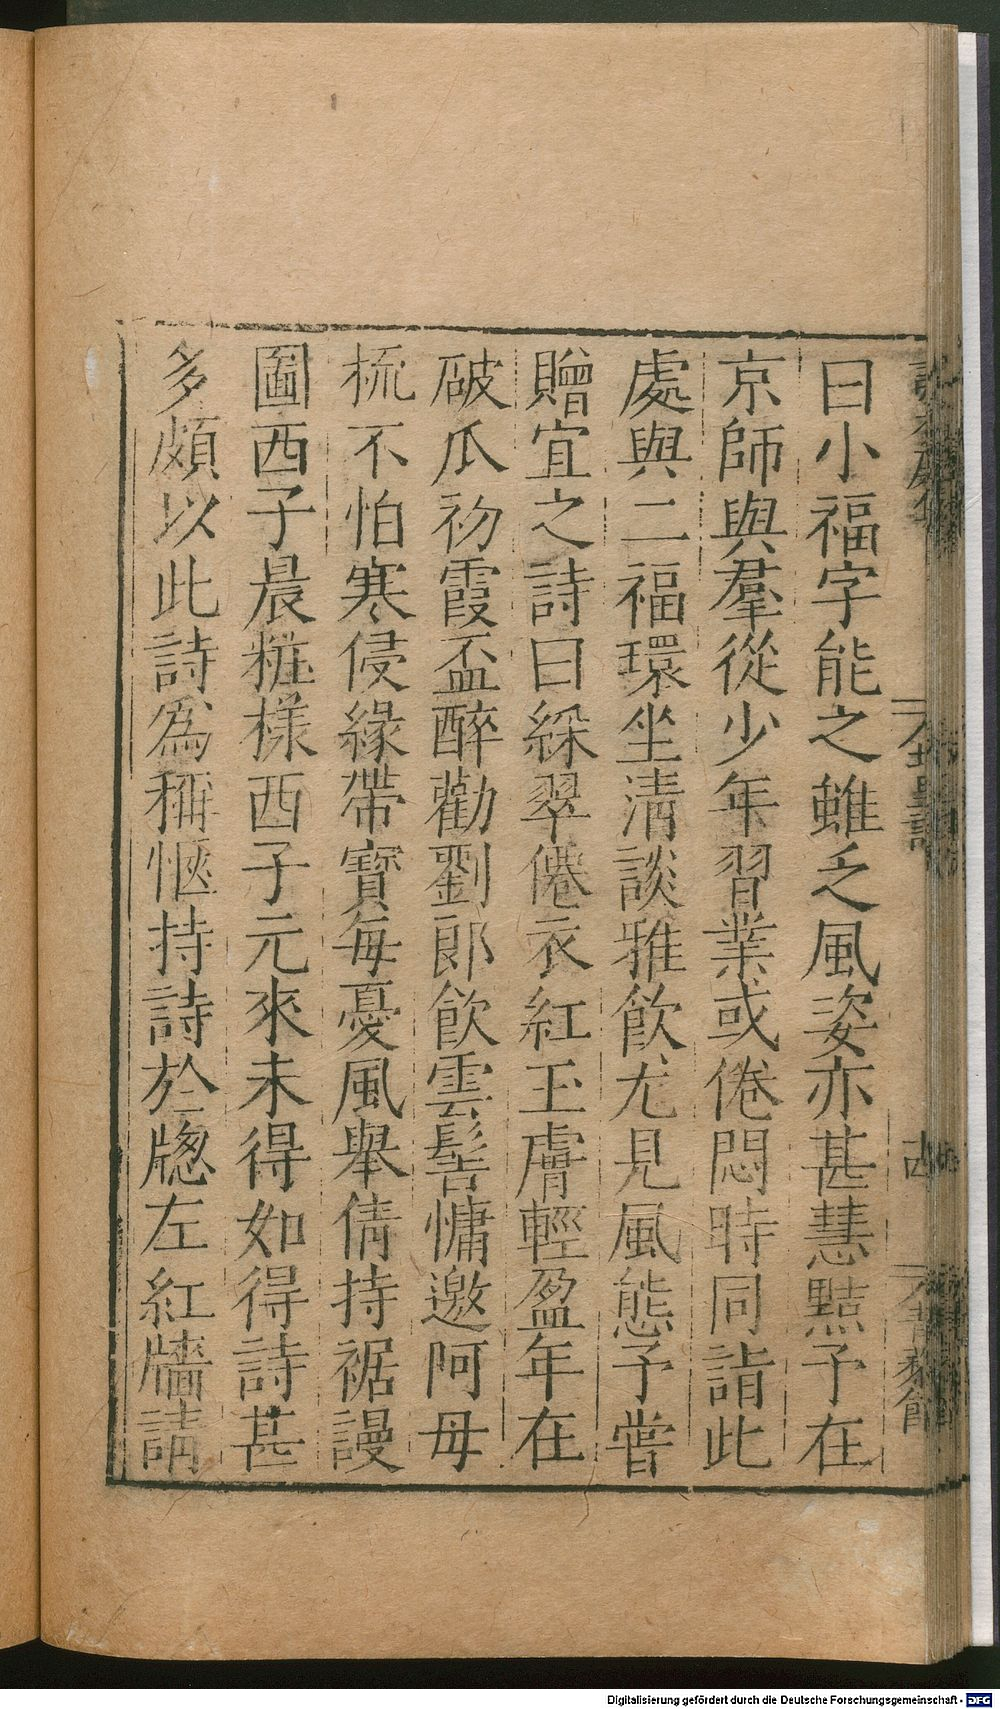 曰小福字能之雖乏風姿亦甚慧黠予在
京師與羣從少年習業或倦悶時同詣此
處與二福環坐清談雅飲尤見風態予嘗
贈宜之詩曰綵翠僊衣紅玉膚輕盈年在
破瓜初霞盃醉勸劉郎飲雲髻慵邀阿母
梳不怕寒侵緣帶寶每憂風舉倩持裾謾
圖西子晨糚樣西子元來未得如得詩甚
多頗以此詩爲稱愜持詩於牎左紅牆請
Digitalisierung gefördert durch die Deutsche Forschungsgemeinschaft - DFG